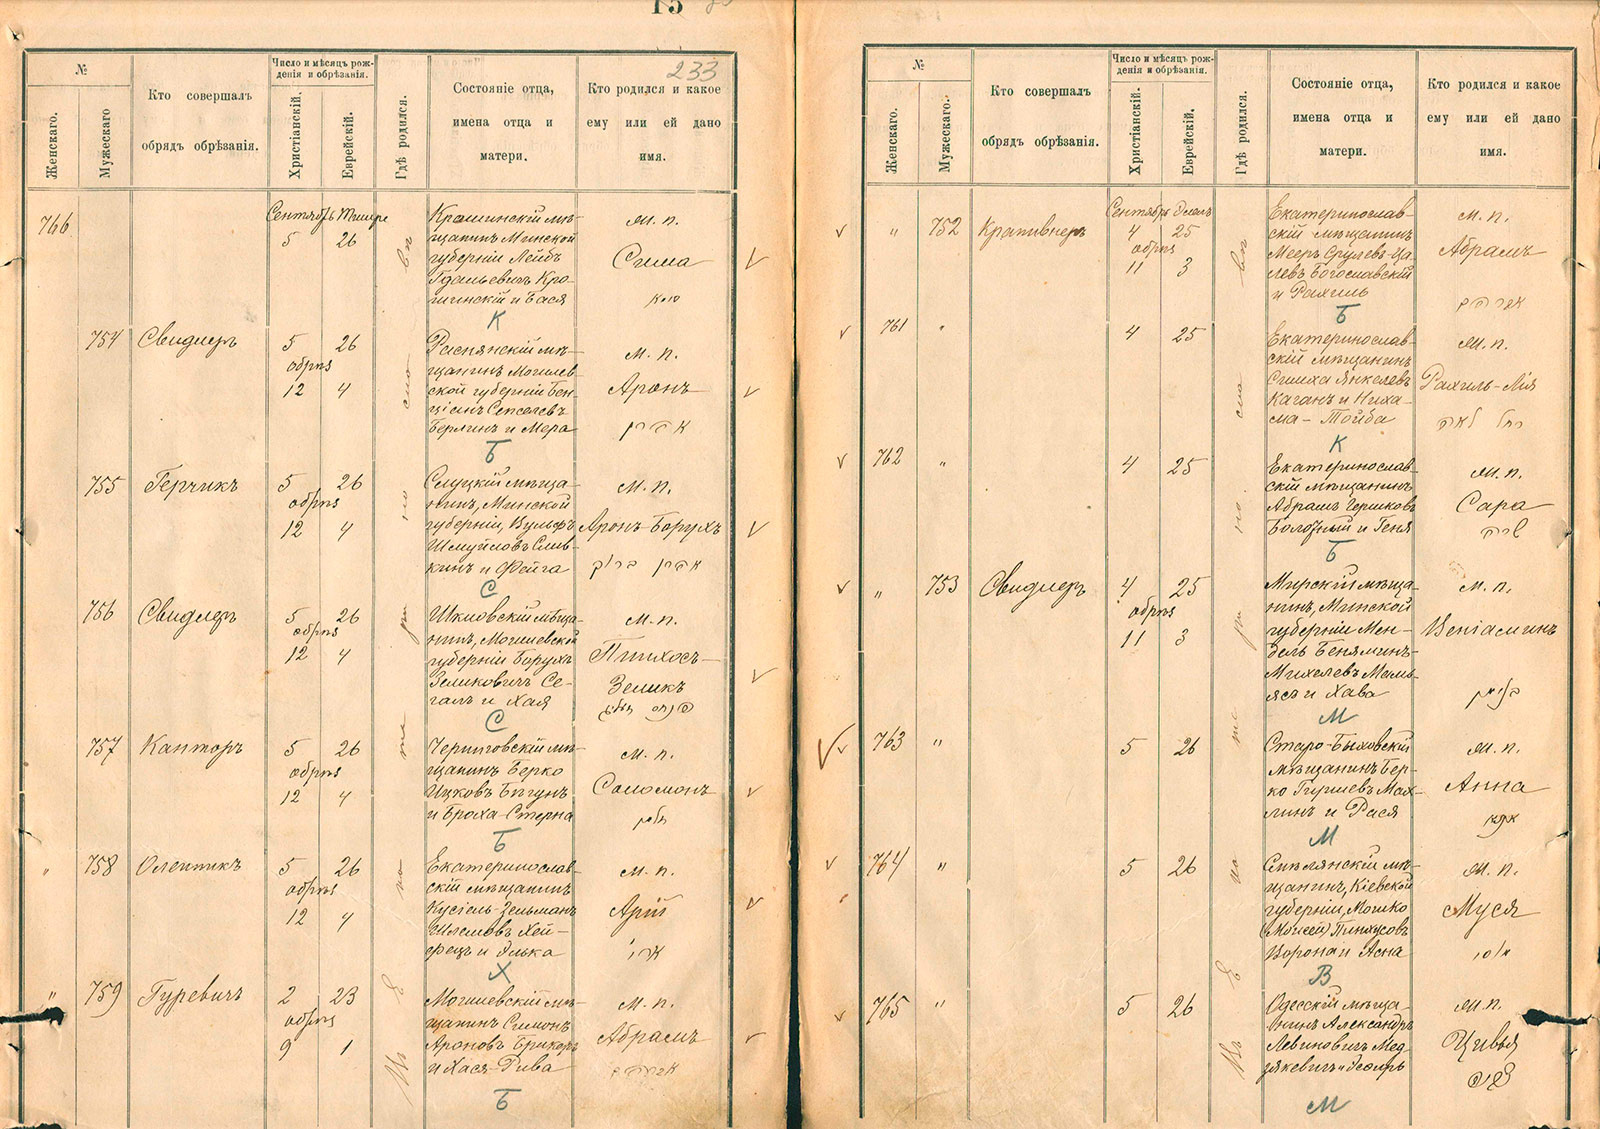 15
233
№
Женскаго.
Мужескаго
Кто совершалъ
обрядъ обрѣзанія.
Число и мѣсяцъ рож-
денія и обрѣзанія.
Христіанскій.
Еврейскій.
Гдѣ родился.
Состояніе отца,
имена отца и
матери.
Кто родился и какое
ему или ей дано
имя.
766
Сентябрь Тишре
5 26
Крошинскій мѣ-
щанинъ Минской
губерніи Лейбъ
Гдальевичъ Кро-
шинскій и Бася
К
м. п.
Сима
754
Свидлеръ
5 26
обрѣз
12 4
Распянскій мѣ-
щанинъ Могилев-
ской губерніи Бен-
ціанъ
Берлинъ и Мера
Б
м. п.
Аронъ
אהרן
755
Герчикъ
5 26
обрѣз
12 4
Слуцкій мѣща-
нинъ, Минской
губерніи, Вульфъ
Шмуйловъ Слив-
кинъ и Фейга
С
м. п.
Аронъ Борухъ
אהרן ברוך
756
Свидлеръ
5 26
обрѣз
12 4
Шкловскій мѣща-
нинъ, Могилевской
губерніи Борухъ
Зеликовичъ Се-
галъ и Хая
С
м. п.
Пинхосъ-
Зеликъ
757
Канторъ
5 26
обрѣз
12 4
Черниговскій мѣ-
щанинъ Берко
Ицковъ Бѣгунъ
и Броха-Стерна
Б
м. п.
Соломонъ
758
Олептикъ
5 26
обрѣз
12 4
Екатеринослав-
скій мѣщанинъ
Кусіель-Зельманъ
Шлемовъ Хей-
фецъ и Элька
Х
м. п.
Арій
ארי
759
Гуревичъ
2 23
обрѣз
9 1
Могилевскій мѣ-
щанинъ Симонъ
Ароновъ Брикеръ
и Хася-Рива
Б
м. п.
Абрамъ
אברהם
№
Женскаго.
Мужескаго.
Кто совершалъ
обрядъ обрѣзанія.
Число и мѣсяцъ рож-
денія и обрѣзанія.
Христіанскій.
Еврейскій.
Гдѣ родился.
Состояніе отца,
имена отца и
матери.
Кто родился и какое
ему или ей дано
имя.
" 752
Крапивнеръ
Сентябрь Элолъ
4 25
обрѣз
11 3
Екатеринослав-
скій мѣщанинъ
Мееръ Срулевъ-Ца-
левъ Богославскій
и Рахиль
Б
м. п.
Абрамъ
אברהם
761 "
4 25
Екатеринослав-
скій мѣщанинъ
Симха Янкелевъ
Каганъ и Неха-
ма-Тойба
К
м. п.
Рахиль-Лія
רחל לאה
762 "
4 25
Екатеринослав-
скій мѣщанинъ
Абрамъ Гершковъ
Болотный и Геня
Б
м. п.
Сара
שרה
" 753
Свидлеръ
4 25
обрѣз
11 3
Мирскій мѣща-
нинъ, Минской
губерніи Мен-
дель Беняминъ-
Михелевъ
и Хава
М
м. п.
Веніаминъ
763 "
5 26
Старо-Быховскій
мѣщанинъ Бер-
ко Гиршевъ Мах-
линъ и Рася
М
м. п.
Анна
764 "
5 26
Смѣлянскій мѣ-
щанинъ, Кіевской
губерніи, Мошко
(Моисей) Пинхусовъ
Ворона и Асна
В
м. п.
Муся
מוסי
765 "
5 26
Одесскій мѣща-
нинъ Александръ
Левиновичъ Мед-
зякевичъ и Эсфирь
М
м. п.
Цивья